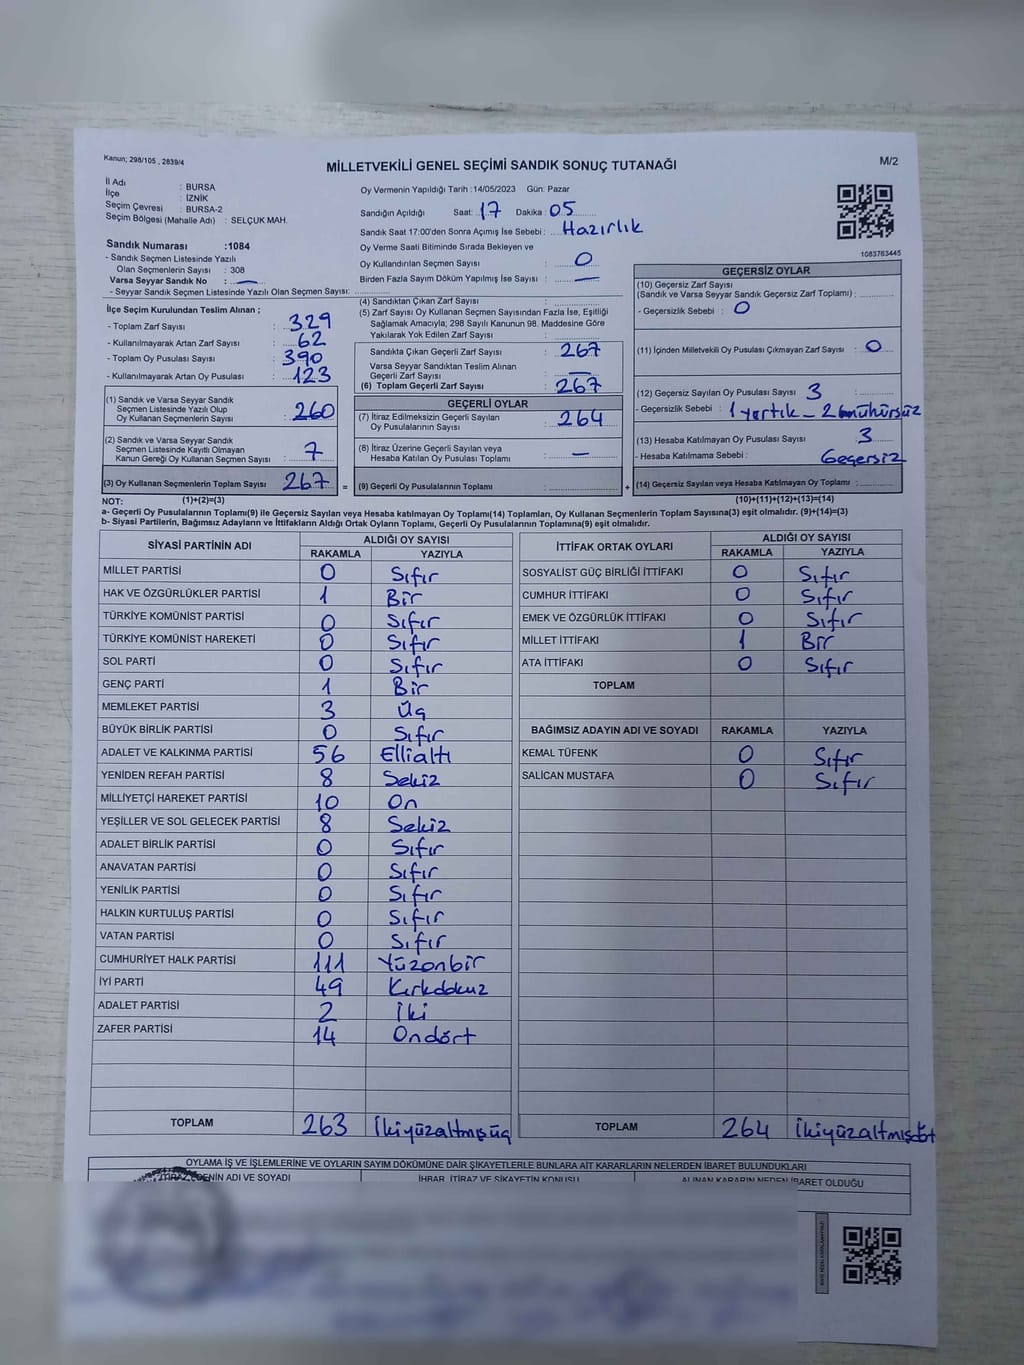 Kanun; 298/105 , 2839/4
MİLLETVEKİLİ GENEL SEÇİMİ SANDIK SONUÇ TUTANAĞI
M/2
İl Adı : BURSA
İlçe : İZNİK
Seçim Çevresi : BURSA-2
Seçim Bölgesi (Mahalle Adı) : SELÇUK MAH.
Sandık Numarası :1084
- Sandık Seçmen Listesinde Yazılı
Olan Seçmenlerin Sayısı : 308
Varsa Seyyar Sandık No : —
- Seyyar Sandık Seçmen Listesinde Yazılı Olan Seçmen Sayısı:
Oy Vermenin Yapıldığı Tarih :14/05/2023 Gün: Pazar
Sandığın Açıldığı Saat: 17 Dakika : 05
Sandık Saat 17:00'den Sonra Açımış İse Sebebi : Hazırlık
Oy Verme Saati Bitiminde Sırada Bekleyen ve
Oy Kullandırılan Seçmen Sayısı : 0
Birden Fazla Sayım Döküm Yapılmış İse Sayısı : —
1083763445
İlçe Seçim Kurulundan Teslim Alınan ;
- Toplam Zarf Sayısı : 329
- Kullanılmayarak Artan Zarf Sayısı : 62
- Toplam Oy Pusulası Sayısı : 390
- Kullanılmayarak Artan Oy Pusulası : 123
(1) Sandık ve Varsa Seyyar Sandık
Seçmen Listesinde Yazılı Olup
Oy Kullanan Seçmenlerin Sayısı : 260
(2) Sandık ve Varsa Seyyar Sandık
Seçmen Listesinde Kayıtlı Olmayan
Kanun Gereği Oy Kullanan Seçmen Sayısı : 7
(3) Oy Kullanan Seçmenlerin Toplam Sayısı : 267 =
(4) Sandıktan Çıkan Zarf Sayısı :
(5) Zarf Sayısı Oy Kullanan Seçmen Sayısından Fazla İse, Eşitliği
Sağlamak Amacıyla; 298 Sayılı Kanunun 98. Maddesine Göre
Yakılarak Yok Edilen Zarf Sayısı :
Sandıkta Çıkan Geçerli Zarf Sayısı : 267
Varsa Seyyar Sandıktan Teslim Alınan
Geçerli Zarf Sayısı : —
(6) Toplam Geçerli Zarf Sayısı : 267
GEÇERLİ OYLAR
(7) İtiraz Edilmeksizin Geçerli Sayılan
Oy Pusulalarının Sayısı : 264
(8) İtiraz Üzerine Geçerli Sayılan veya
Hesaba Katılan Oy Pusulası Toplamı : —
(9) Geçerli Oy Pusulalarının Toplamı : +
GEÇERSİZ OYLAR
(10) Geçersiz Zarf Sayısı
(Sandık ve Varsa Seyyar Sandık Geçersiz Zarf Toplamı) :
- Geçersizlik Sebebi : 0
(11) İçinden Milletvekili Oy Pusulası Çıkmayan Zarf Sayısı : 0
(12) Geçersiz Sayılan Oy Pusulası Sayısı 3
- Geçersizlik Sebebi : 1 yırtık - 2 mühürsüz
(13) Hesaba Katılmayan Oy Pusulası Sayısı 3
- Hesaba Katılmama Sebebi : Geçersiz
(14) Geçersiz Sayılan veya Hesaba Katılmayan Oy Toplamı :
NOT: (1)+(2)=(3) (10)+(11)+(12)+(13)=(14)
a- Geçerli Oy Pusulalarının Toplamı(9) ile Geçersiz Sayılan veya Hesaba katılmayan Oy Toplamı(14) Toplamları, Oy Kullanan Seçmenlerin Toplam Sayısına(3) eşit olmalıdır. (9)+(14)=(3)
b- Siyasi Partilerin, Bağımsız Adayların ve İttifakların Aldığı Ortak Oyların Toplamı, Geçerli Oy Pusulalarının Toplamına(9) eşit olmalıdır.
SİYASİ PARTİNİN ADI ALDIĞI OY SAYISI
RAKAMLA YAZIYLA
MİLLET PARTİSİ 0 Sıfır
HAK VE ÖZGÜRLÜKLER PARTİSİ 1 Bir
TÜRKİYE KOMÜNİST PARTİSİ 0 Sıfır
TÜRKİYE KOMÜNİST HAREKETİ 0 Sıfır
SOL PARTİ 0 Sıfır
GENÇ PARTİ 1 Bir
MEMLEKET PARTİSİ 3 Üç
BÜYÜK BİRLİK PARTİSİ 0 Sıfır
ADALET VE KALKINMA PARTİSİ 56 Ellialtı
YENİDEN REFAH PARTİSİ 8 Sekiz
MİLLİYETÇİ HAREKET PARTİSİ 10 On
YEŞİLLER VE SOL GELECEK PARTİSİ 8 Sekiz
ADALET BİRLİK PARTİSİ 0 Sıfır
ANAVATAN PARTİSİ 0 Sıfır
YENİLİK PARTİSİ 0 Sıfır
HALKIN KURTULUŞ PARTİSİ 0 Sıfır
VATAN PARTİSİ 0 Sıfır
CUMHURİYET HALK PARTİSİ 111 Yüzonbir
İYİ PARTİ 49 Kırkdokuz
ADALET PARTİSİ 2 İki
ZAFER PARTİSİ 14 Ondört
TOPLAM 263 İkiyüzaltmışüç
İTTİFAK ORTAK OYLARI ALDIĞI OY SAYISI
RAKAMLA YAZIYLA
SOSYALİST GÜÇ BİRLİĞİ İTTİFAKI 0 Sıfır
CUMHUR İTTİFAKI 0 Sıfır
EMEK VE ÖZGÜRLÜK İTTİFAKI 0 Sıfır
MİLLET İTTİFAKI 1 Bir
ATA İTTİFAKI 0 Sıfır
TOPLAM
BAĞIMSIZ ADAYIN ADI VE SOYADI RAKAMLA YAZIYLA
KEMAL TÜFENK 0 Sıfır
SALİCAN MUSTAFA 0 Sıfır
TOPLAM 264 İkiyüzaltmışdört
OYLAMA İŞ VE İŞLEMLERİNE VE OYLARIN SAYIM DÖKÜMÜNE DAİR ŞİKAYETLERLE BUNLARA AİT KARARLARIN NELERDEN İBARET BULUNDUKLARI
İTİRAZ EDENİN ADI VE SOYADI İHBAR, İTİRAZ VE ŞİKAYETİN KONUSU ALINAN KARARIN NEDEN İBARET OLDUĞU